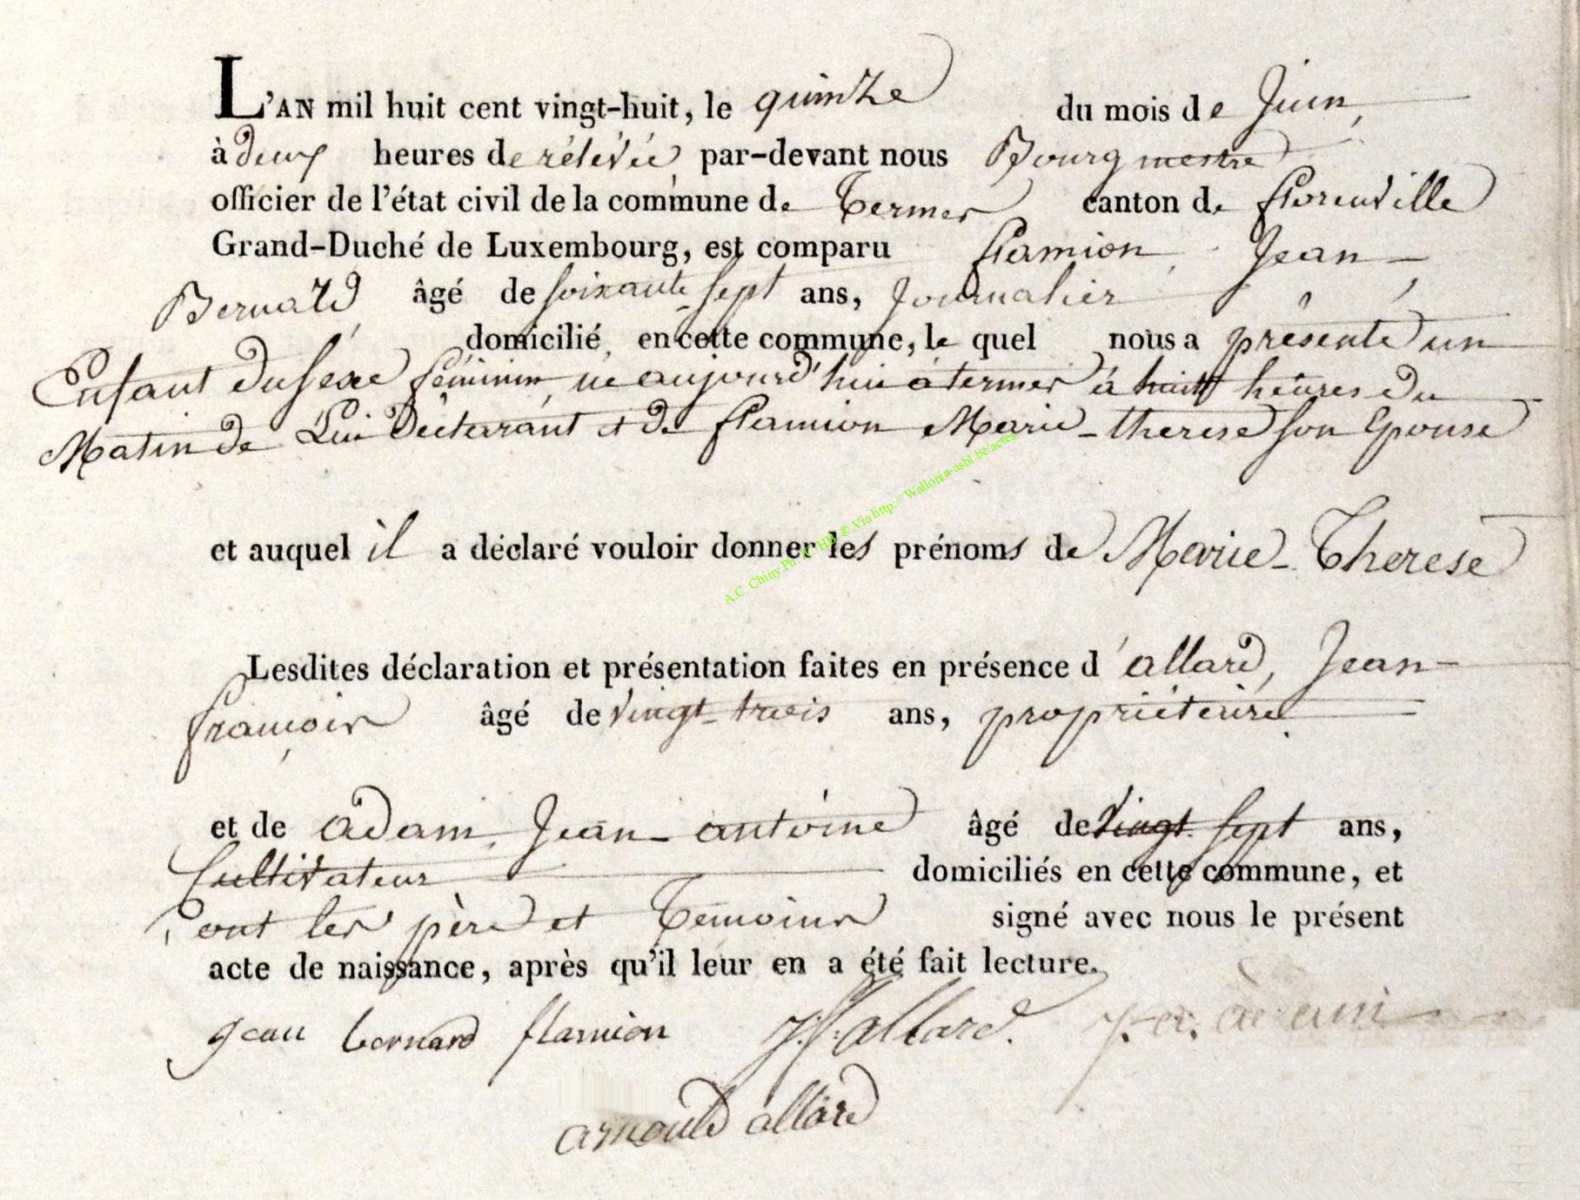 L'AN mil huit cent vingt-huit, le quinze du mois de Juin,
à deux heures de rélévée, par-devant nous Bourgmestre
officier de l'état civil de la commune de Termes canton de florenville
Grand-Duché de Luxembourg, est comparu flamion, Jean-
Bernard, âgé de soixante-sept ans, Journalier
domicilié en cette commune, le quel nous a présenté un
Enfant du sexe féminin, né aujourd'hui à termes à huit heures du
Matin de Lui Déclarant et de flamion Marie-therese son Epouse
et auquel il a déclaré vouloir donner les prénoms de Marie-Therese
Lesdites déclaration et présentation faites en présence d'allard, Jean-
françois âgé de vingt-trois ans, propriétaire
et de adam, Jean-antoine âgé de vingt-sept ans,
Cultivateur domiciliés en cette commune, et
ont les père et Témoins signé avec nous le présent
acte de naissance, après qu'il leur en a été fait lecture.
jean bernard flamion J. f. allard. J. a. adam
arnould allard
A.C. Chiny Via http:// Wallonia-asbl.be/actes